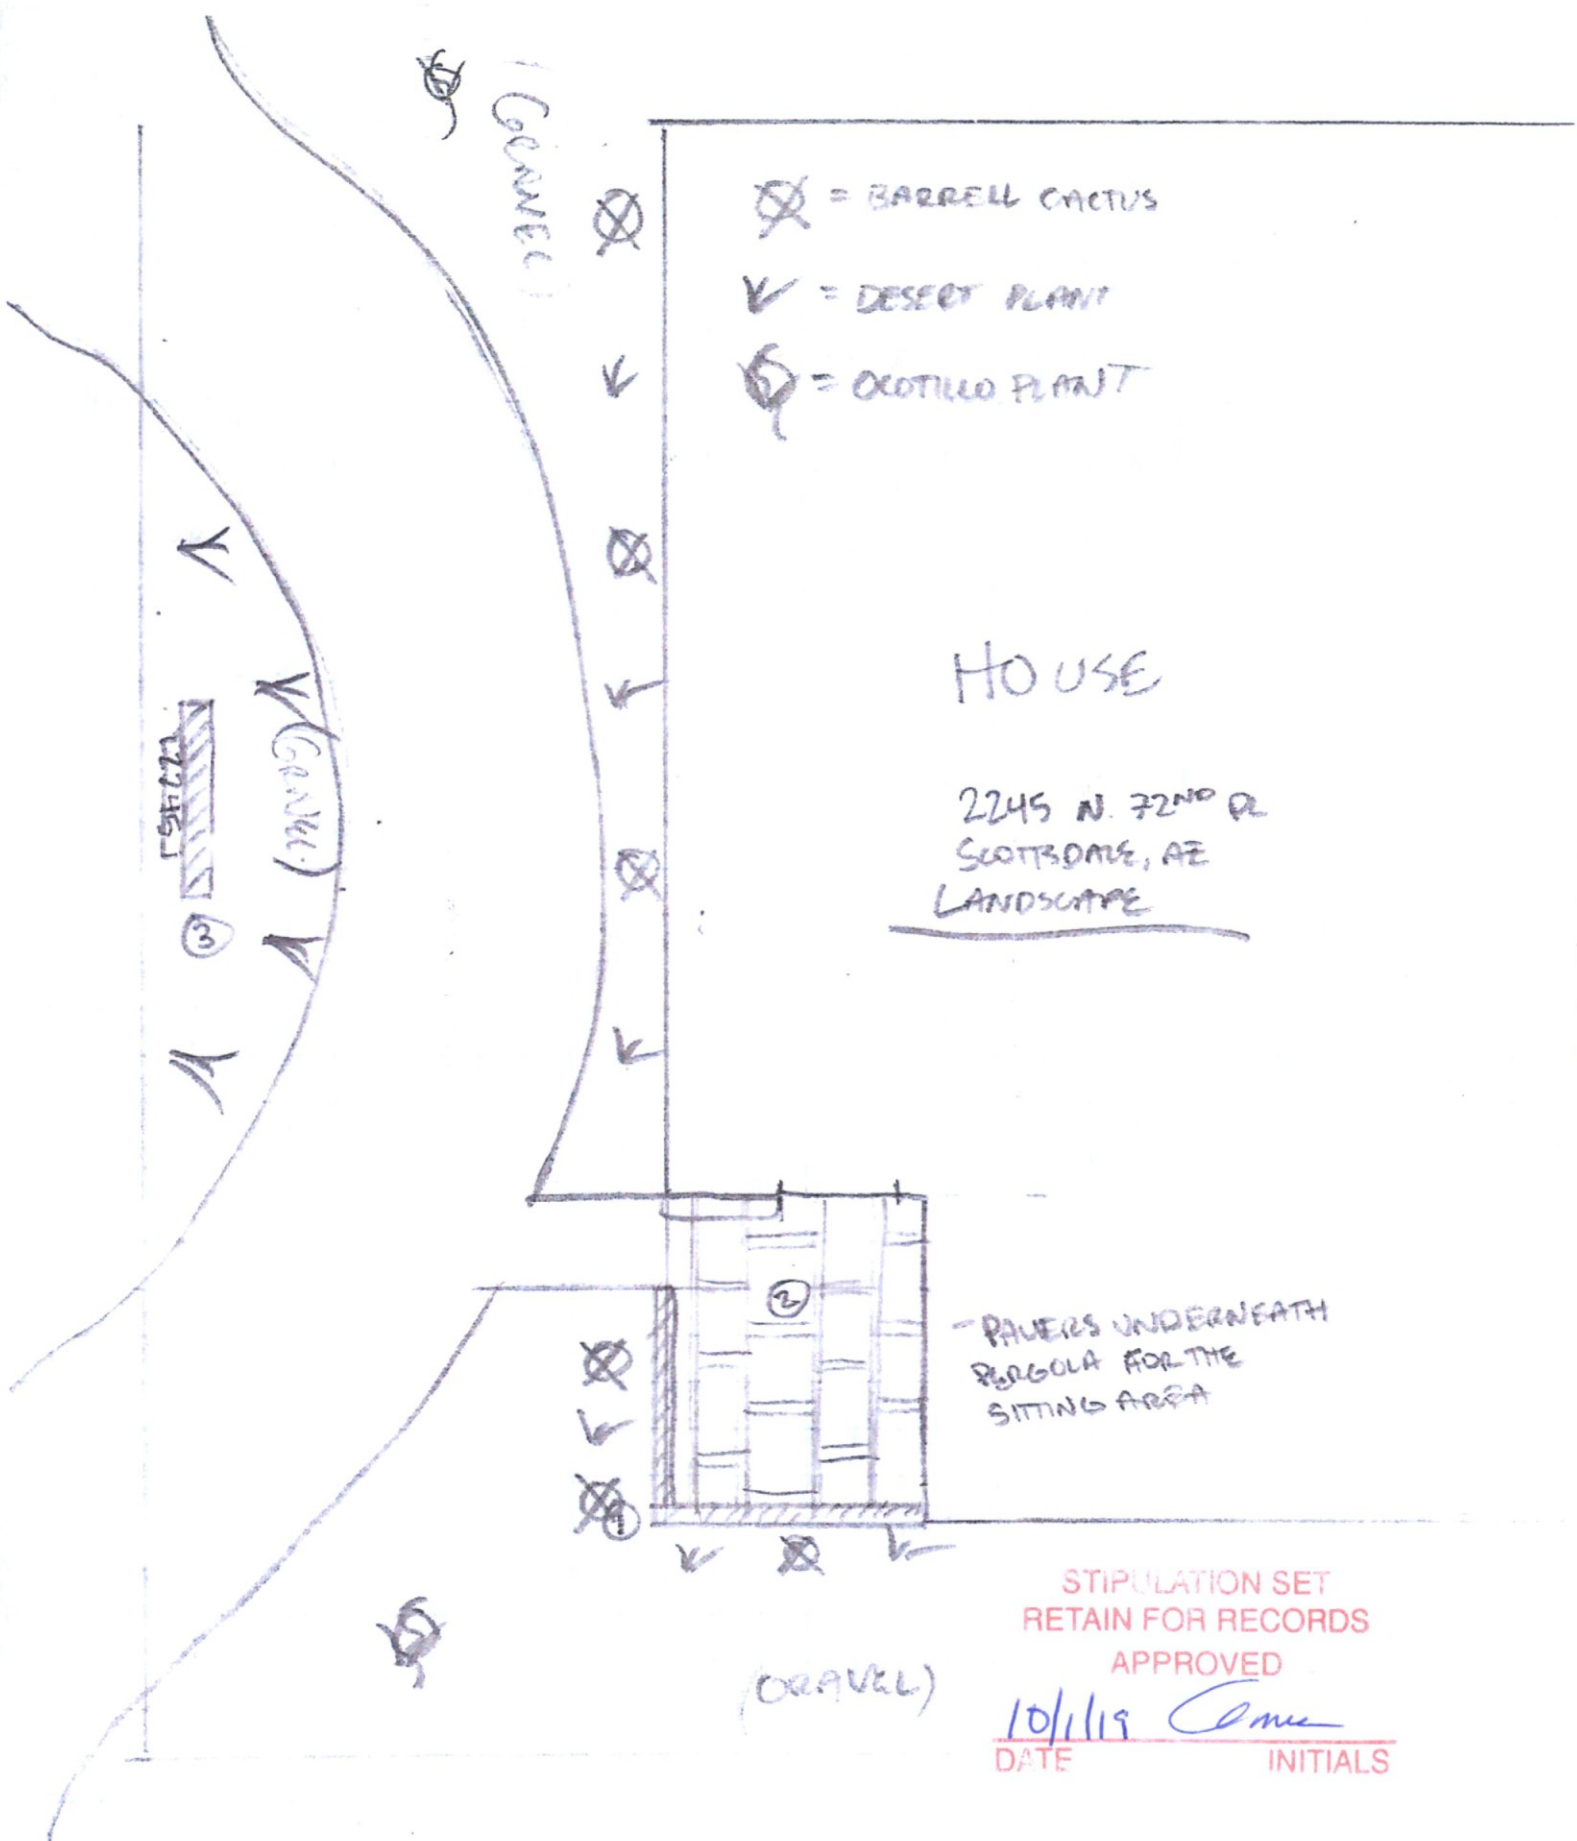 (GRAVEL)
= BARRELL CACTUS
= DESERT PLANT
= OCOTILLO PLANT
HOUSE
2245 N. 72ND PL
SCOTTSDALE, AZ
LANDSCAPE
(GRAVEL)
2245
3
2
- PAVERS UNDERNEATH
PERGOLA FOR THE
SITTING AREA
1
(GRAVEL)
STIPULATION SET
RETAIN FOR RECORDS
APPROVED
10/1/19
DATE INITIALS